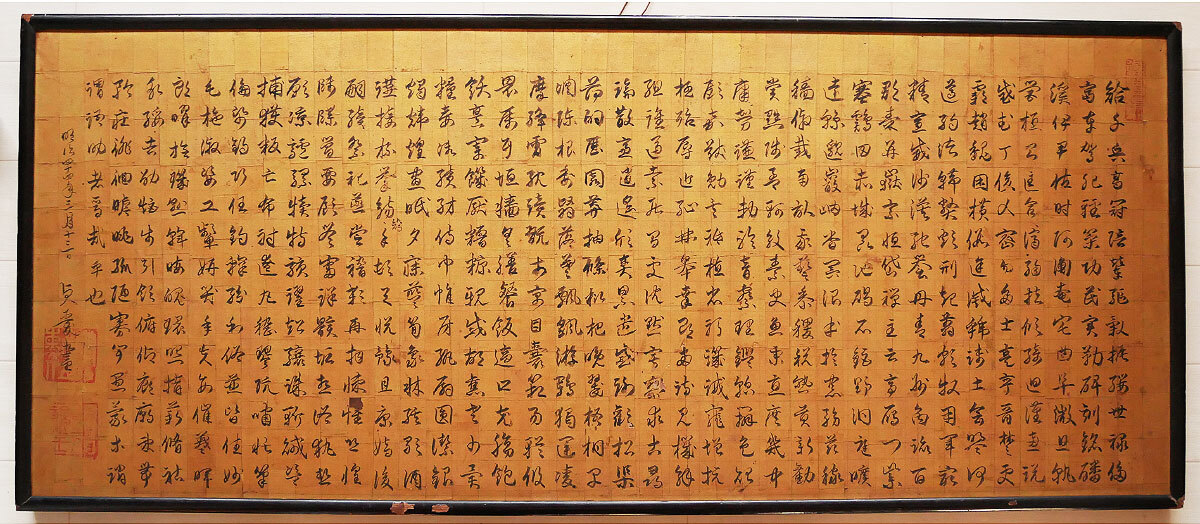 給千兵高冠陪輦驅轂振纓世祿侈
富車駕肥輕策功茂實勒碑刻銘磻
溪伊尹佐時阿衡奄宅曲阜微旦孰
營桓公匡合濟弱扶傾綺迴漢惠說
感武丁俊乂密勿多士寔寧晉楚更
霸趙魏困橫假途滅虢踐土會盟何
遵約法韓弊煩刑起翦頗牧用軍最
精宣威沙漠馳譽丹青九州禹跡百
郡秦并嶽宗恒岱禪主云亭雁門紫
塞雞田赤城昆池碣石鉅野洞庭曠
遠綿邈巖岫杳冥治本於農務茲稼
穡俶載南畝我藝黍稷稅熟貢新勸
賞黜陟孟軻敦素史魚秉直庶幾中
庸勞謙謹勅聆音察理鑑貌辨色貽
厥嘉猷勉其祗植省躬譏誡寵增抗
極殆辱近恥林皋幸即兩疏見機解
組誰逼索居閑處沈默寂寥求古尋
論散慮逍遙欣奏累遣慼謝歡招渠
荷的歷園莽抽條枇杷晚翠梧桐早
凋陳根委翳落葉飄颻游鵾獨運凌
摩絳霄耽讀翫市寓目囊箱易輶攸
畏屬耳垣牆具膳餐飯適口充腸飽
飫烹宰饑厭糟糠親戚故舊老少異
糧妾御績紡侍巾帷房紈扇圓潔銀
燭煒煌晝眠夕寐藍筍象牀絃歌酒
讌接杯舉觴矯手頓足悅豫且康嫡後
嗣續祭祀蒸嘗稽顙再拜悚懼恐惶
牋牒簡要顧答審詳骸垢想浴執熱
願涼驢騾犢特駭躍超驤誅斬賊盜
捕獲叛亡布射遼丸嵇琴阮嘯恬筆
倫紙鈞巧任釣釋紛利俗並皆佳妙
毛施淑姿工顰妍笑年矢每催羲暉
朗曜璇璣懸斡晦魄環照指薪修祜
永綏吉劭矩步引領俯仰廊廟束帶
矜莊徘徊瞻眺孤陋寡聞愚蒙等誚
謂語助者焉哉乎也
明治四十四年三月十三日 貞書